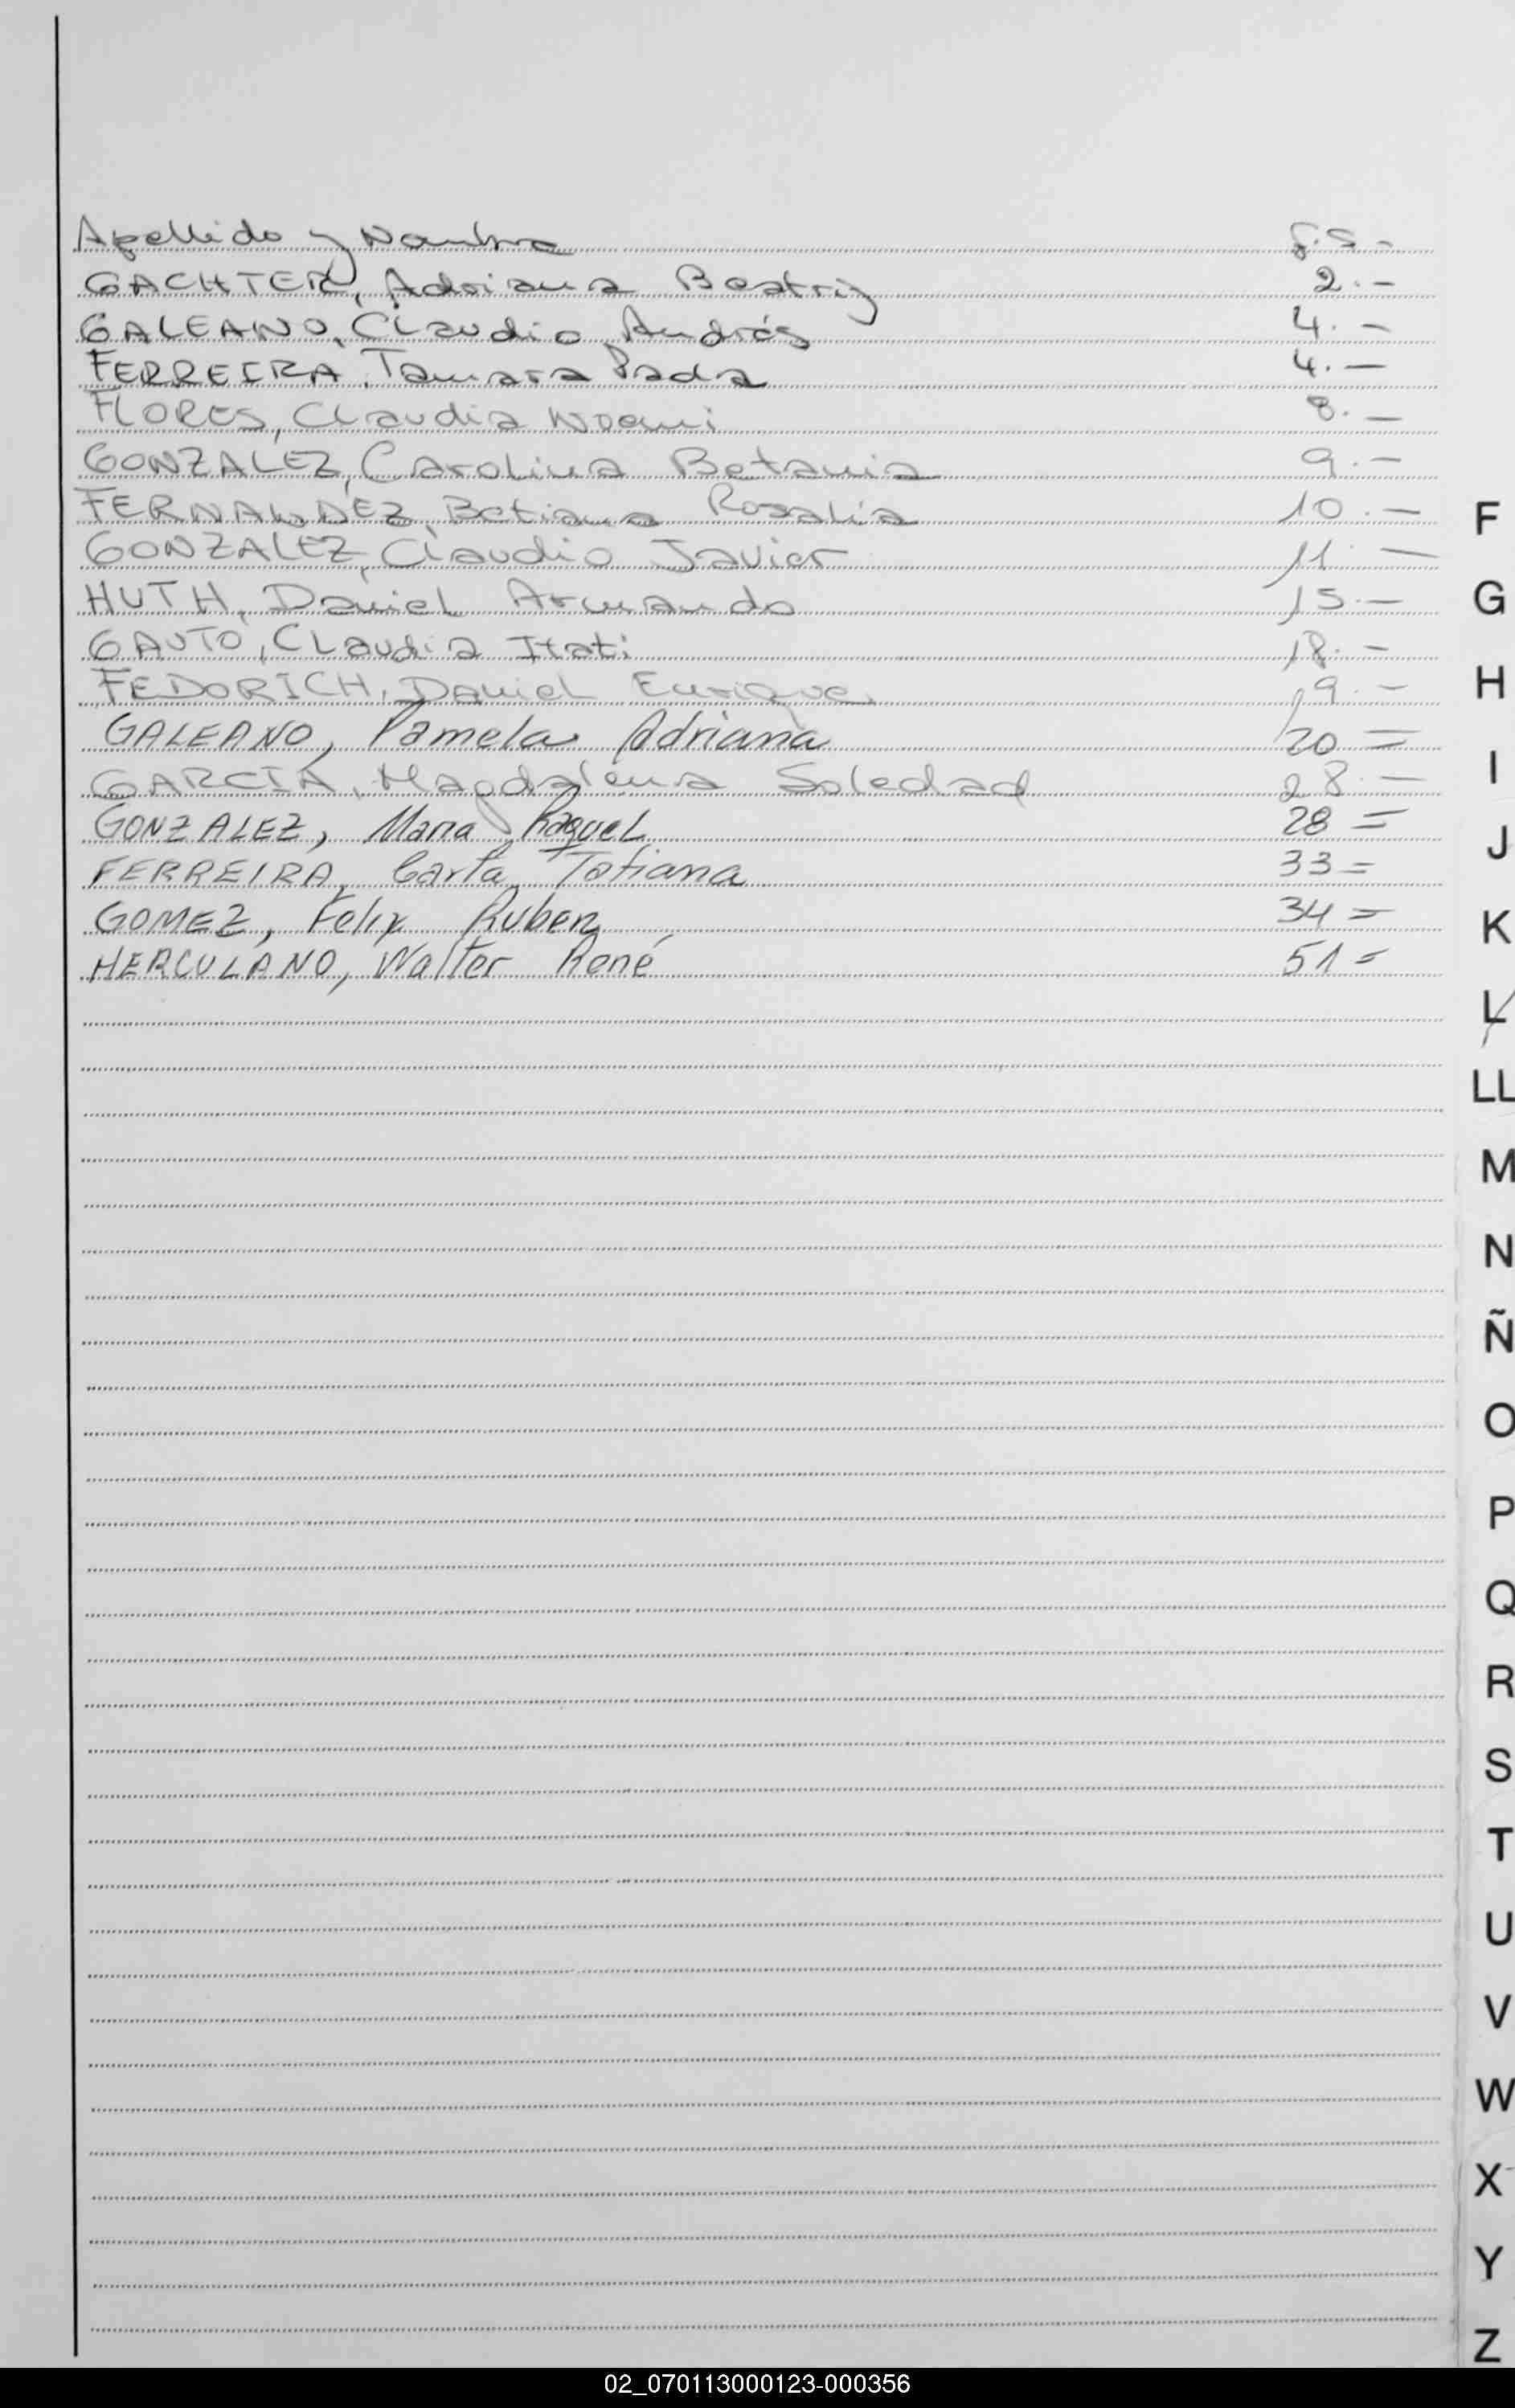 Apellido y Nombre f.s.-
GACHTER, Adriana Beatriz 2.-
GALEANO, Claudio Andrés 4.-
FERREIRA, Tamara 4.-
FLORES, Claudia Noemi 8.-
GONZALEZ, Carolina Betania 9.-
FERNANDEZ, Betiana Rosalia 10.-
GONZALEZ, Claudio Javier 11.-
HUTH, Daniel Armando 15.-
GAUTO, Claudia Itati 18.-
FEDORICH, Daniel Enrique 19.-
GALEANO, Pamela Adriana 20=
GARCIA, Magdalena Soledad 28.-
GONZALEZ, Maria Raquel 28=
FERREIRA, Carla Tatiana 33=
GOMEZ, Felix Ruben 34=
HERCULANO, Walter René 51=
F
G
H
I
J
K
L
LL
M
N
Ñ
O
P
Q
R
S
T
U
V
W
X
Y
Z
02_070113000123-000356